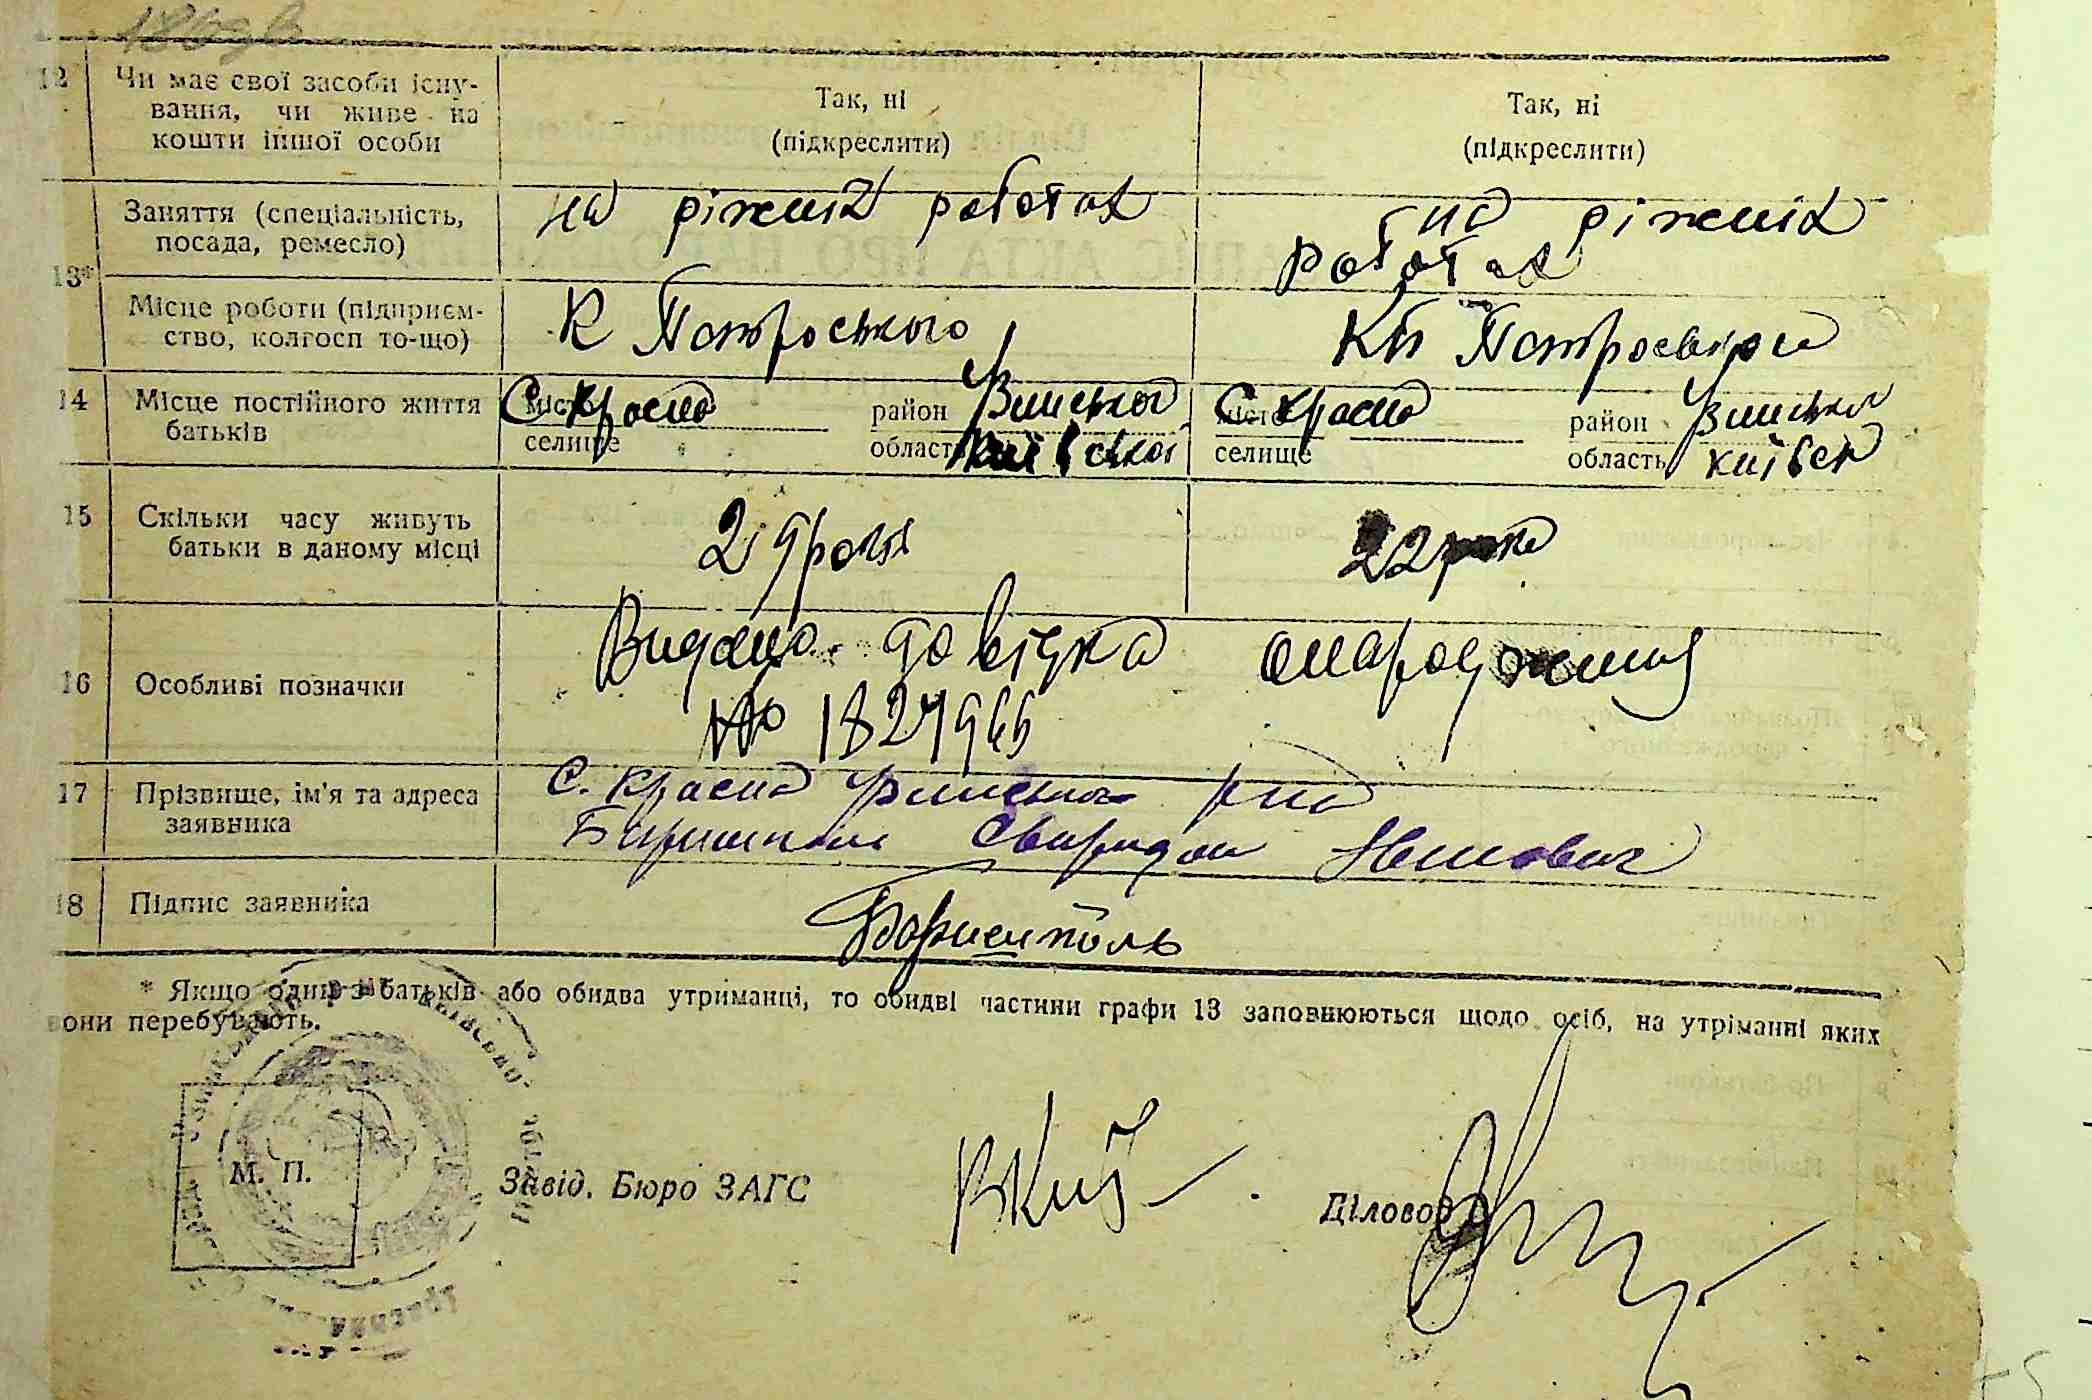 12 Чи має свої засоби існу-
вання, чи живе на
кошти іншої особи
Так, ні
(підкреслити)
Так, ні
(підкреслити)
13*
Заняття (спеціальність,
посада, ремесло)
на ріжних роботах
на ріжних
роботах
Місце роботи (підприєм-
ство, колгосп то-що)
К Петровського
КП
14 Місце постійного життя
батьків
місто С Красна район
селище область Київської
місто С Красна район
селище область Київськ
15 Скільки часу живуть
батьки в даному місці
29 років
22 роки
16 Особливі позначки
Видано довідка
№ 1827966
17 Прізвище, ім'я та адреса
заявника
С. Красна
Свиридон
18 Підпис заявника
Бориспіль
* Якщо один з батьків або обидва утриманці, то обидві частини графи 13 заповнюються щодо осіб, на утриманні яких
вони перебувають.
М. П.
Завід. Бюро ЗАГС
Діловод